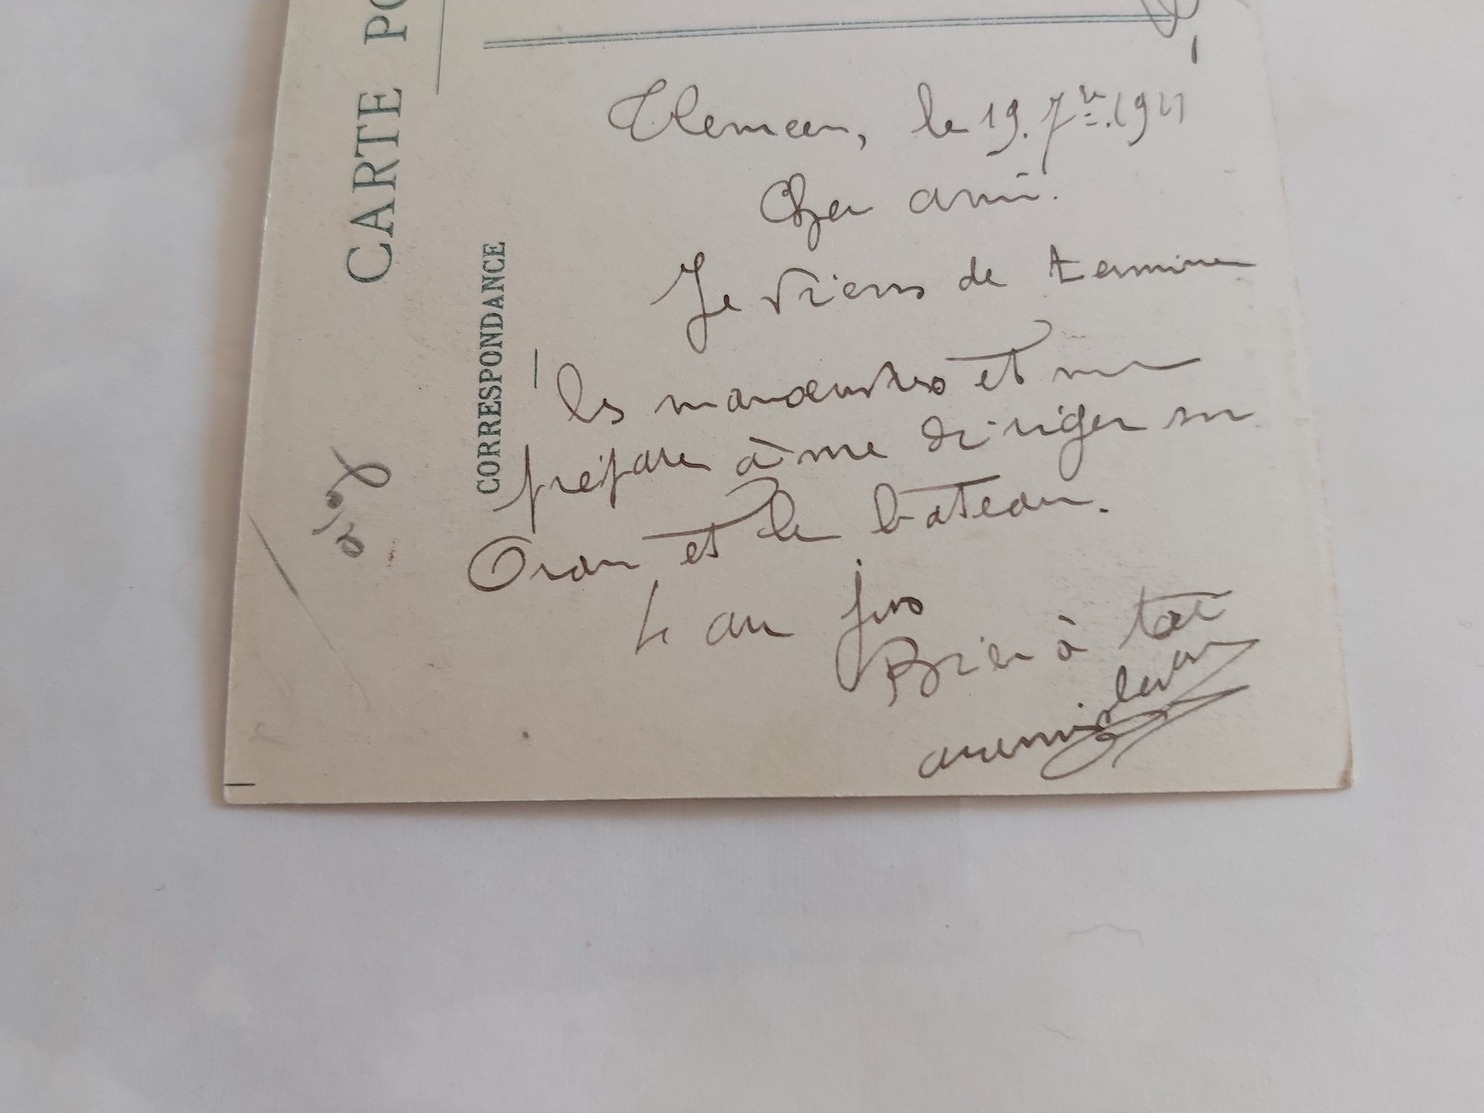 CARTE PO
CORRESPONDANCE
Tlemcen, le 19. 7bre. 1921
Cher ami.
Je viens de terminer
les manoeuvres et me
prépare à me diriger sur
Oran et le bateau.
4 au jus
Bien à toi